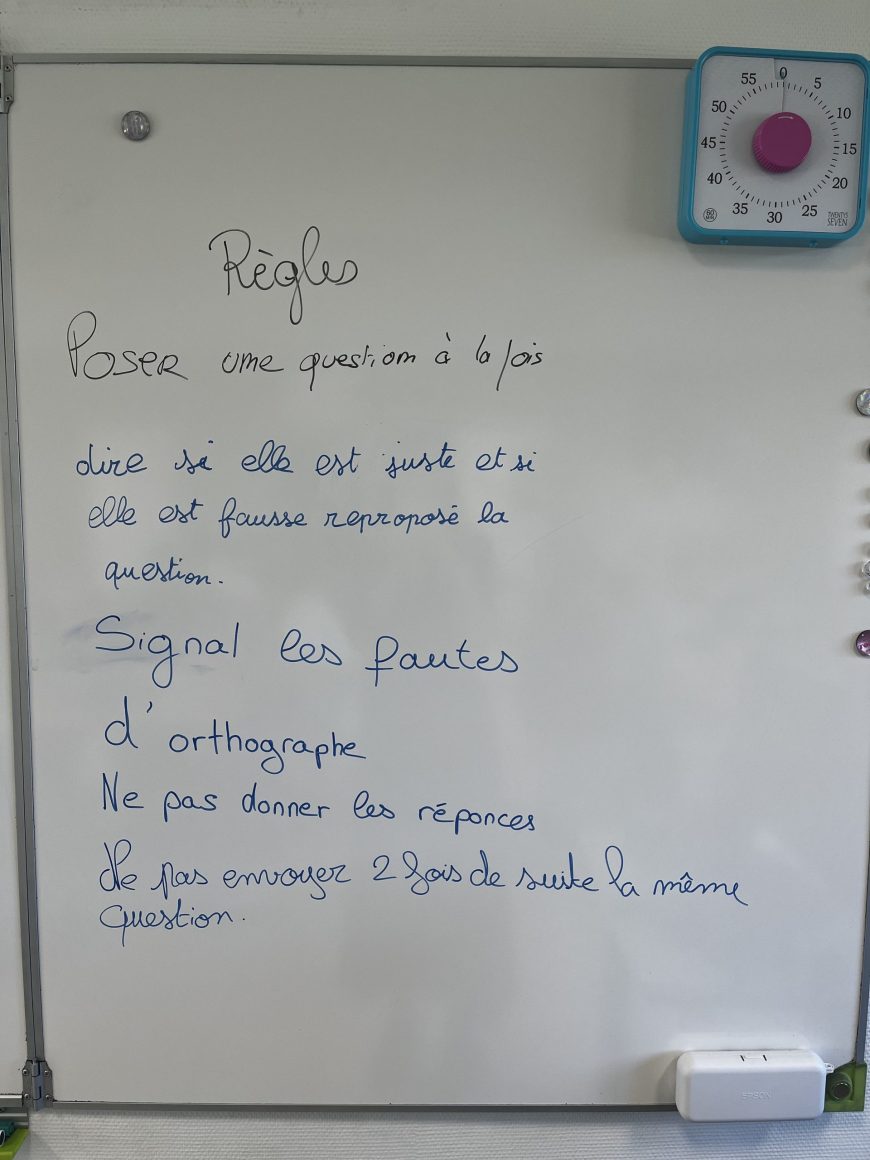 55 0 5
50 10
45 15
40 20
35 30 25
60 MIN
TWENTY5
SEVEN
Règles
Poser une question à la fois
dire si elle est juste et si
elle est fausse reproposé la
question.
Signal les fautes
d'orthographe
Ne pas donner les réponces
Ne pas envoyer 2 fois de suite la même
question.
EPSON